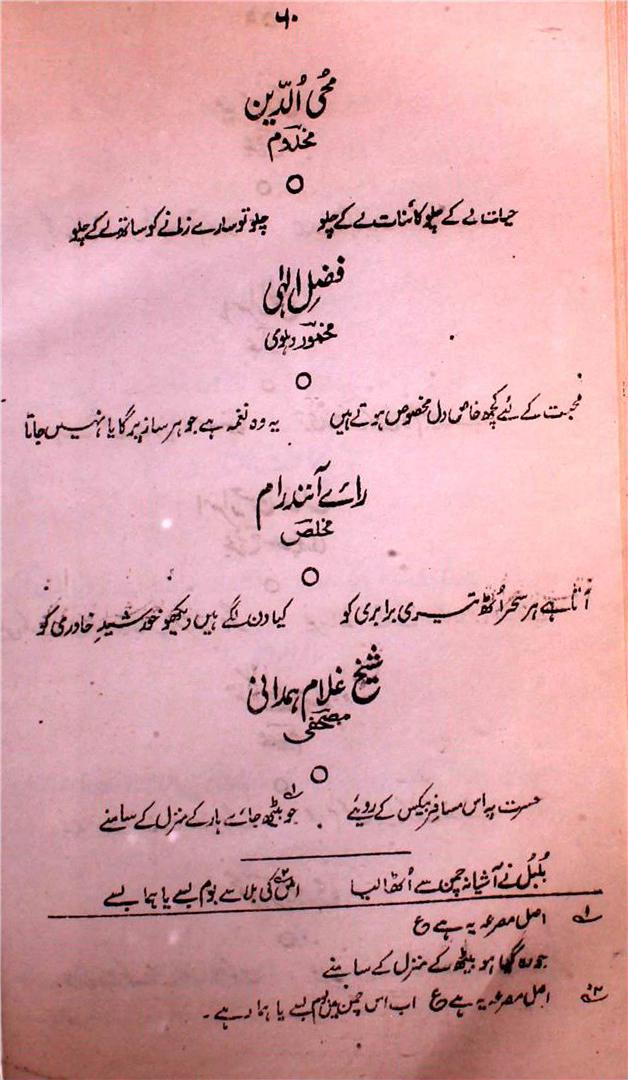 ۶۰
محی الدّین
مخدوم
حیات لے کے چلو کائنات لے کے چلو چلو تو سارے زمانے کو ساتھ لے کے چلو
فضلِ الٰہی
مخمور دہلوی
محبت کے لئے کچھ خاص دل مخصوص ہوتے ہیں یہ وہ نغمہ ہے جو ہر ساز پر گایا نہیں جاتا
رائے آنند رام
مخلص
آتا ہے ہر سحر اُٹھ تیری برابری کو کیا دن لگے ہیں دیکھو خورشیدِ خاوری کو
شیخ غلام ہمدانی
مصحفی
حسرت پہ اس مسافرِ بیکس کے رویئے جو بیٹھ جائے ہار کے منزل کے سامنے ۱
بُلبُل نے آشیانہ چمن سے اُٹھا لیا اس کی بلا سے بوم بسے یا ہما بسے ۲
۱ اصل مصرعہ یہ ہے ع
جو رہ گیا ہو بیٹھ کے منزل کے سامنے
۲ اصل مصرعہ یہ ہے ع اب اس چمن میں بوم بسے یا ہما رہے۔